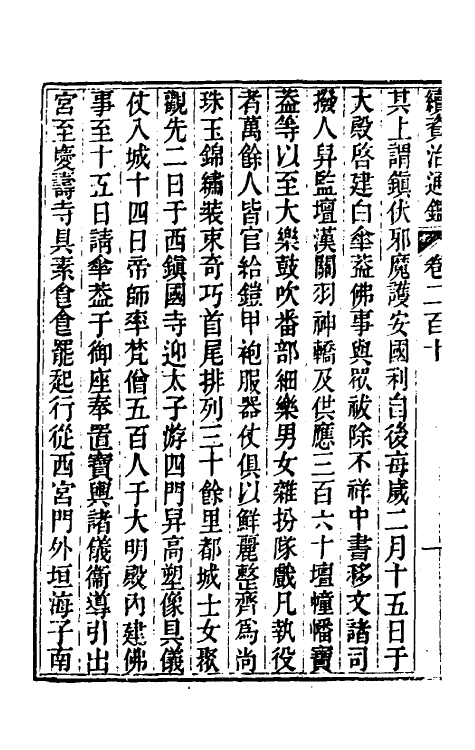 續資治通鑑 卷二百十 一
其上謂鎮伏邪魔護安國利自後每歲二月十五日于
大殿啓建白傘葢佛事與眾祓除不祥中書移文諸司
撥人舁監壇漢關羽神轎及供應三百六十壇幢幡寶
葢等以至大樂鼓吹番部細樂男女雜扮隊戲凡執役
者萬餘人皆官給鎧甲袍服器仗俱以鮮麗整齊爲尚
珠玉錦繡裝束奇巧首尾排列三十餘里都城士女聚
觀先二日于西鎮國寺迎太子游四門舁高塑像具儀
仗入城十四日帝師率梵僧五百人于大明殿內建佛
事至十五日請傘葢于御座奉置寶輿諸儀衞導引出
宮至慶壽寺具素食食罷起行從西宮門外垣海子南